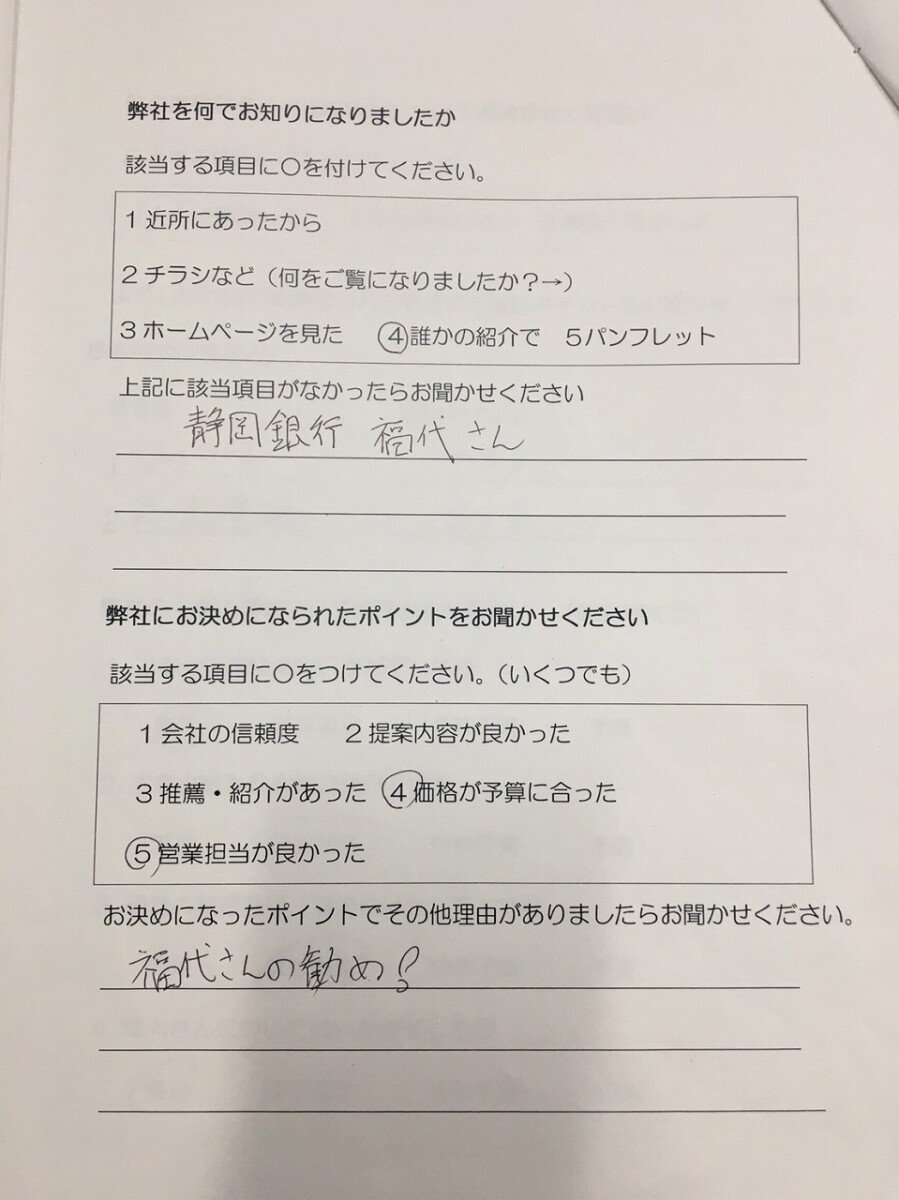 弊社を何でお知りになりましたか
該当する項目に〇を付けてください。
1 近所にあったから
2 チラシなど(何をご覧になりましたか?→)
3 ホームページを見た ④誰かの紹介で 5パンフレット
上記に該当項目がなかったらお聞かせください
静岡銀行 福代さん
弊社にお決めになられたポイントをお聞かせください
該当する項目に〇をつけてください。(いくつでも)
1 会社の信頼度 2 提案内容が良かった
3 推薦・紹介があった ④価格が予算に合った
⑤営業担当が良かった
お決めになったポイントでその他理由がありましたらお聞かせください。
福代さんの勧め?